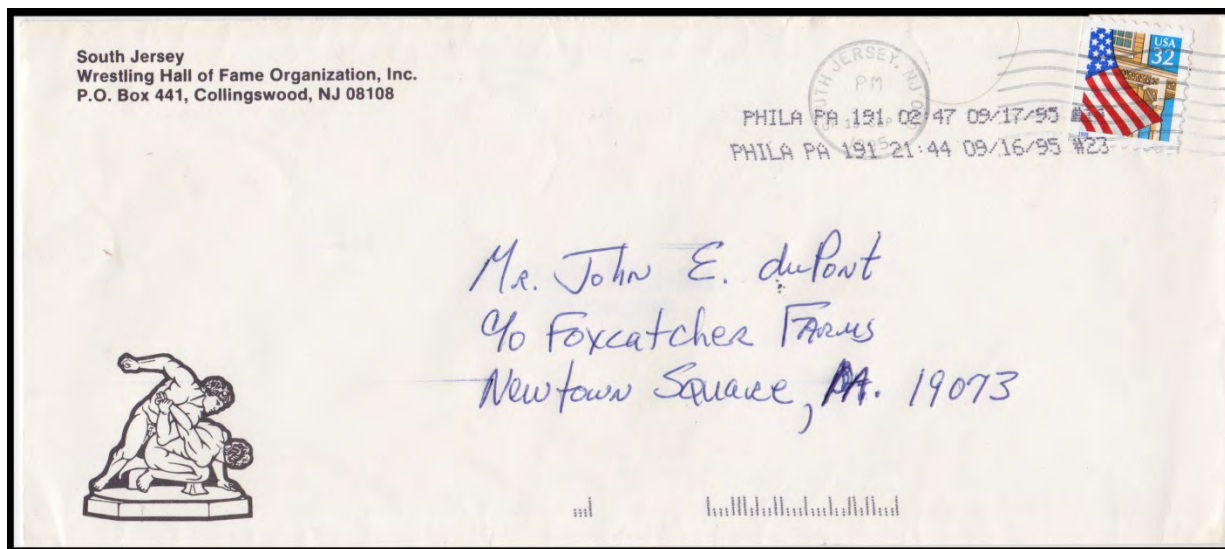 South Jersey
Wrestling Hall of Fame Organization, Inc.
P.O. Box 441, Collingswood, NJ 08108
SOUTH JERSEY, NJ
PM
1995
USA
32
PHILA PA 191 02:47 09/17/95
PHILA PA 191 21:44 09/16/95 #23
Mr. John E. duPont
c/o Foxcatcher Farms
Newtown Square, PA. 19073